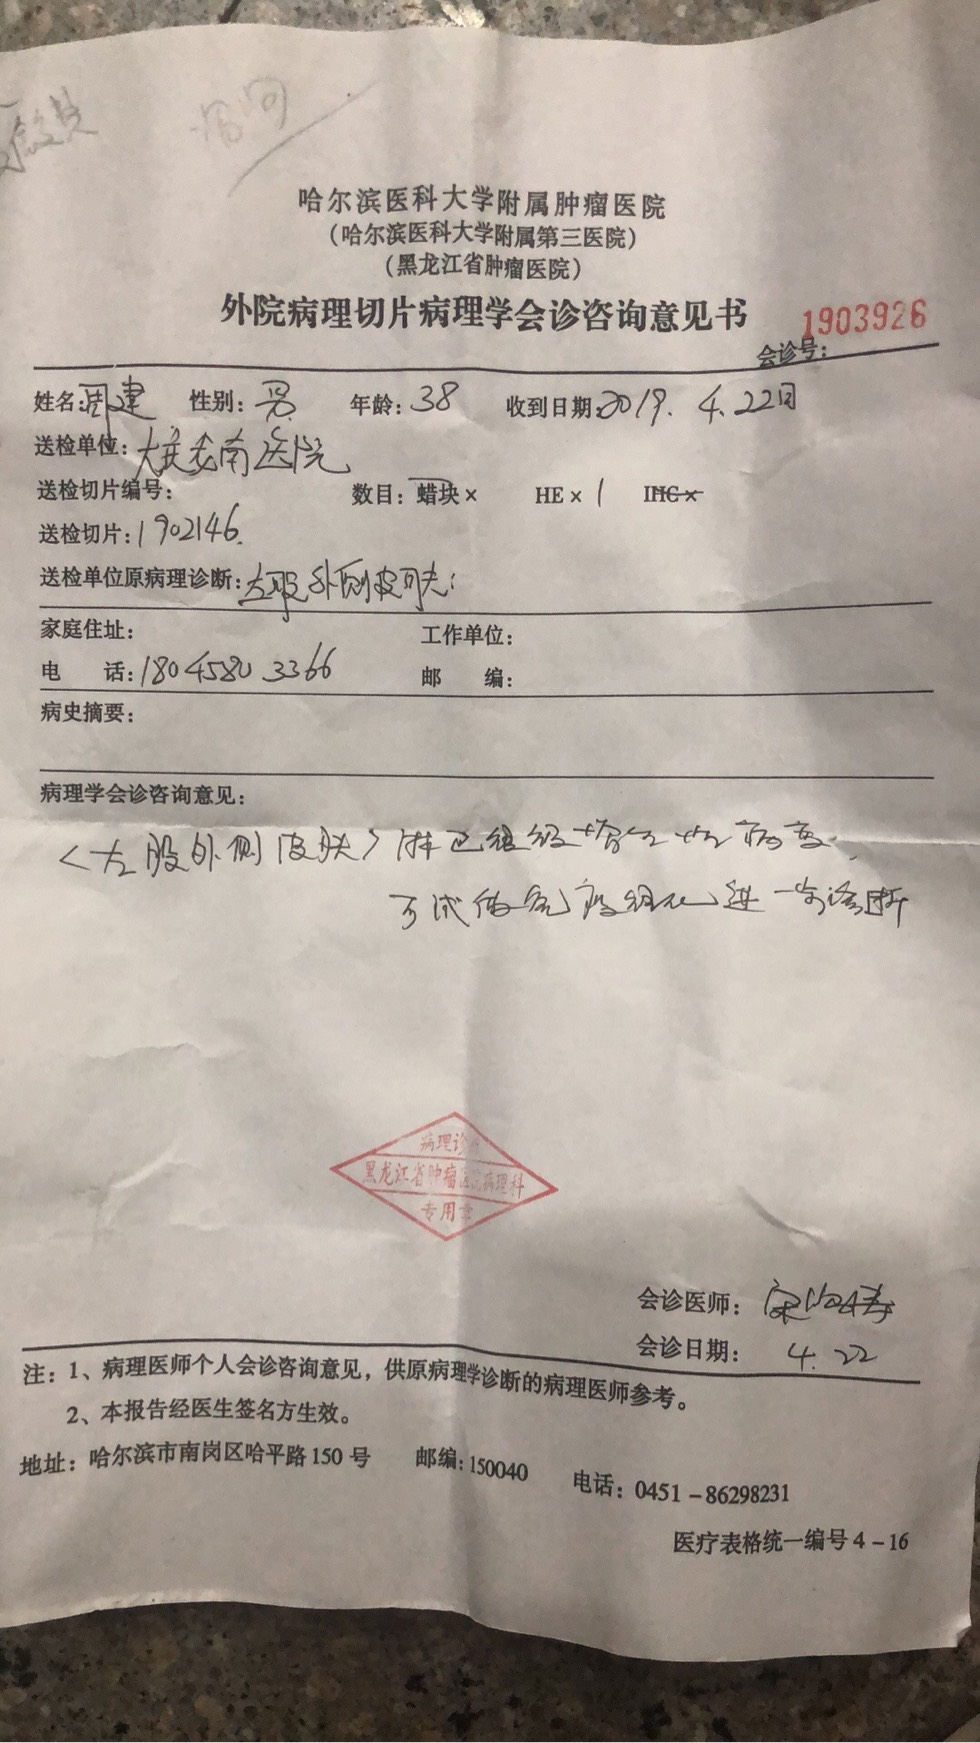 哈尔滨医科大学附属肿瘤医院
（哈尔滨医科大学附属第三医院）
（黑龙江省肿瘤医院）
外院病理切片病理学会诊咨询意见书
会诊号：1903926
姓名：周建 性别：男 年龄：38 收到日期：2019.4.22日
送检单位：大庆龙南医院
送检切片编号： 数目：蜡块× HE×1 IHC×
送检切片：1902146.
送检单位原病理诊断：左股外侧皮肤：
家庭住址： 工作单位：
电 话：18045803366 邮 编：
病史摘要：
病理学会诊咨询意见：
<左股外侧皮肤>淋巴组织增生性病变，
可试做免疫组化进一步诊断
病理诊
黑龙江省肿瘤医院病理科
专用章
会诊医师：
会诊日期： 4.22
注：1、病理医师个人会诊咨询意见，供原病理学诊断的病理医师参考。
2、本报告经医生签名方生效。
地址：哈尔滨市南岗区哈平路150号 邮编：150040 电话：0451-86298231
医疗表格统一编号4-16